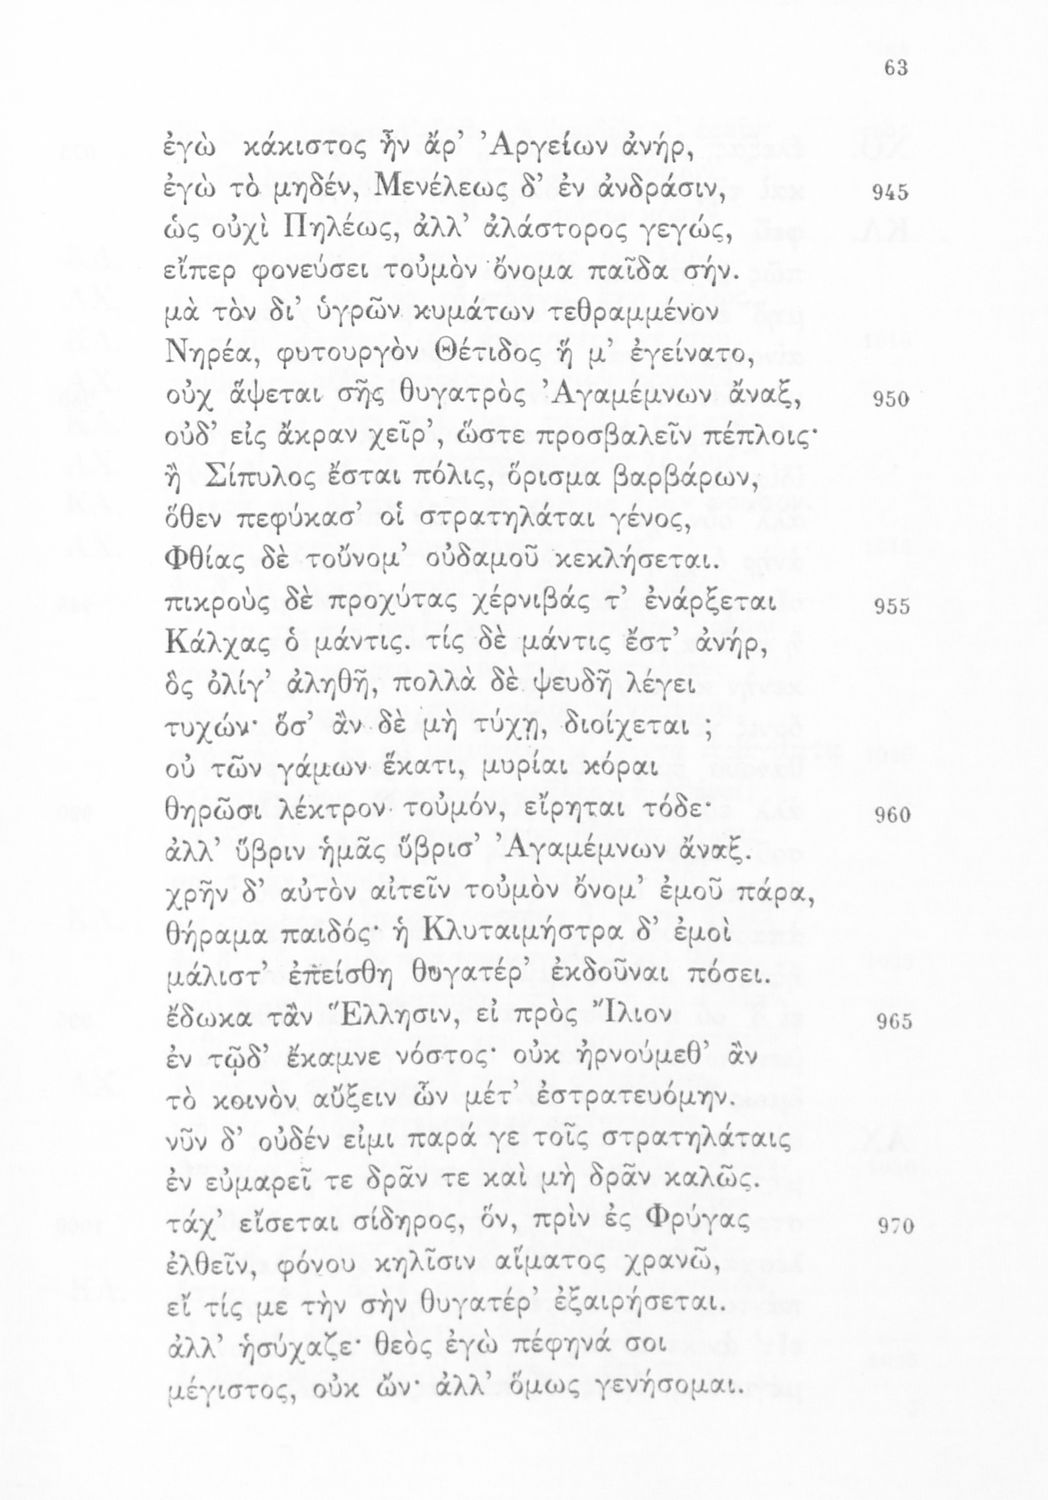 63
ἐγὼ κάκιστος ἦν ἄρ’ Ἀργείων ἀνήρ,
ἐγὼ τὸ μηδέν, Μενέλεως δ’ ἐν ἀνδράσιν, 945
ὡς οὐχὶ Πηλέως, ἀλλ’ ἀλάστορος γεγώς,
εἴπερ φονεύσει τοὐμὸν ὄνομα παῖδα σήν.
μὰ τὸν δι’ ὑγρῶν κυμάτων τεθραμμένον
Νηρέα, φυτουργὸν Θέτιδος ἥ μ’ ἐγείνατο,
οὐχ ἅψεται σῆς θυγατρὸς Ἀγαμέμνων ἄναξ, 950
οὐδ’ εἰς ἄκραν χεῖρ’, ὥστε προσβαλεῖν πέπλοις·
ἢ Σίπυλος ἔσται πόλις, ὅρισμα βαρβάρων,
ὅθεν πεφύκασ’ οἱ στρατηλάται γένος,
Φθίας δὲ τοὔνομ’ οὐδαμοῦ κεκλήσεται.
πικροὺς δὲ προχύτας χέρνιβάς τ’ ἐνάρξεται 955
Κάλχας ὁ μάντις. τίς δὲ μάντις ἔστ’ ἀνήρ,
ὃς ὀλίγ’ ἀληθῆ, πολλὰ δὲ ψευδῆ λέγει
τυχών· ὅσ’ ἂν δὲ μὴ τύχῃ, διοίχεται ;
οὐ τῶν γάμων ἕκατι, μυρίαι κόραι
θηρῶσι λέκτρον τοὐμόν, εἴρηται τόδε· 960
ἀλλ’ ὕβριν ἡμᾶς ὕβρισ’ Ἀγαμέμνων ἄναξ.
χρῆν δ’ αὐτὸν αἰτεῖν τοὐμὸν ὄνομ’ ἐμοῦ πάρα,
θήραμα παιδός· ἡ Κλυταιμήστρα δ’ ἐμοὶ
μάλιστ’ ἐπείσθη θυγατέρ’ ἐκδοῦναι πόσει.
ἔδωκα τἂν Ἕλλησιν, εἰ πρὸς Ἴλιον 965
ἐν τῷδ’ ἔκαμνε νόστος· οὐκ ἠρνούμεθ’ ἂν
τὸ κοινὸν αὔξειν ὧν μέτ’ ἐστρατευόμην.
νῦν δ’ οὐδέν εἰμι παρά γε τοῖς στρατηλάταις
ἐν εὐμαρεῖ τε δρᾶν τε καὶ μὴ δρᾶν καλῶς.
τάχ’ εἴσεται σίδηρος, ὅν, πρὶν ἐς Φρύγας 970
ἐλθεῖν, φόνου κηλῖσιν αἵματος χρανῶ,
εἴ τίς με τὴν σὴν θυγατέρ’ ἐξαιρήσεται.
ἀλλ’ ἡσύχαζε· θεὸς ἐγὼ πέφηνά σοι
μέγιστος, οὐκ ὤν· ἀλλ’ ὅμως γενήσομαι.